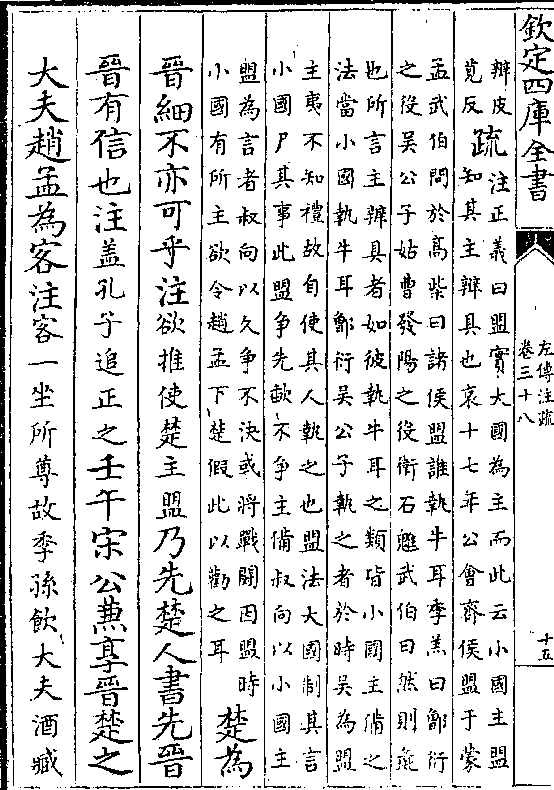 欽定四庫全書
左傳注疏
卷三十八
十五
辧皮
莧反
疏
注正義曰盟實大國為主而此云小國主盟
知其主辨具也哀十七年公會齊侯盟于蒙
孟武伯問於髙柴曰諸侯盟誰執牛耳季羔曰鄫衍
之役吳公子姑曹發陽之役衛石魋武伯曰然則彘
也所言主辨具者如彼執牛耳之類皆小國主備之
法當小國執牛耳鄫衍吳公子執之者於時吳為盟
主夷不知禮故自使其人執之也盟法大國制其言
小國尸其事此盟争先歃不争主備叔向以小國主
盟為言者叔向以久争不決或將戰鬬因盟時
小國有所主欲令趙孟下楚假此以勸之耳
楚為
晉細不亦可乎注欲推使楚主盟乃先楚人書先晉
晉有信也注盖孔子追正之壬午宋公兼享晉楚之
大夫趙孟為客注客一坐所尊故季孫飲大夫酒臧